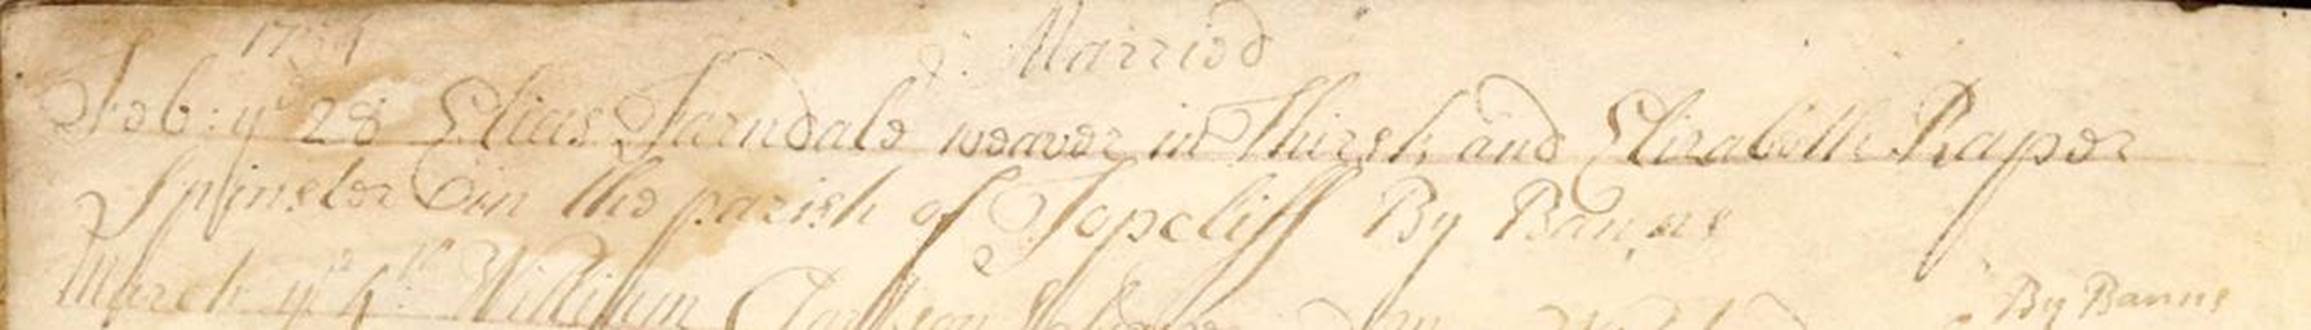 Married
Feb: ye 28 Elias Farndale weaver in Thirsk and Elizabeth Raper
Spinster in the parish of Topcliff By Banns
March ye William By Banns